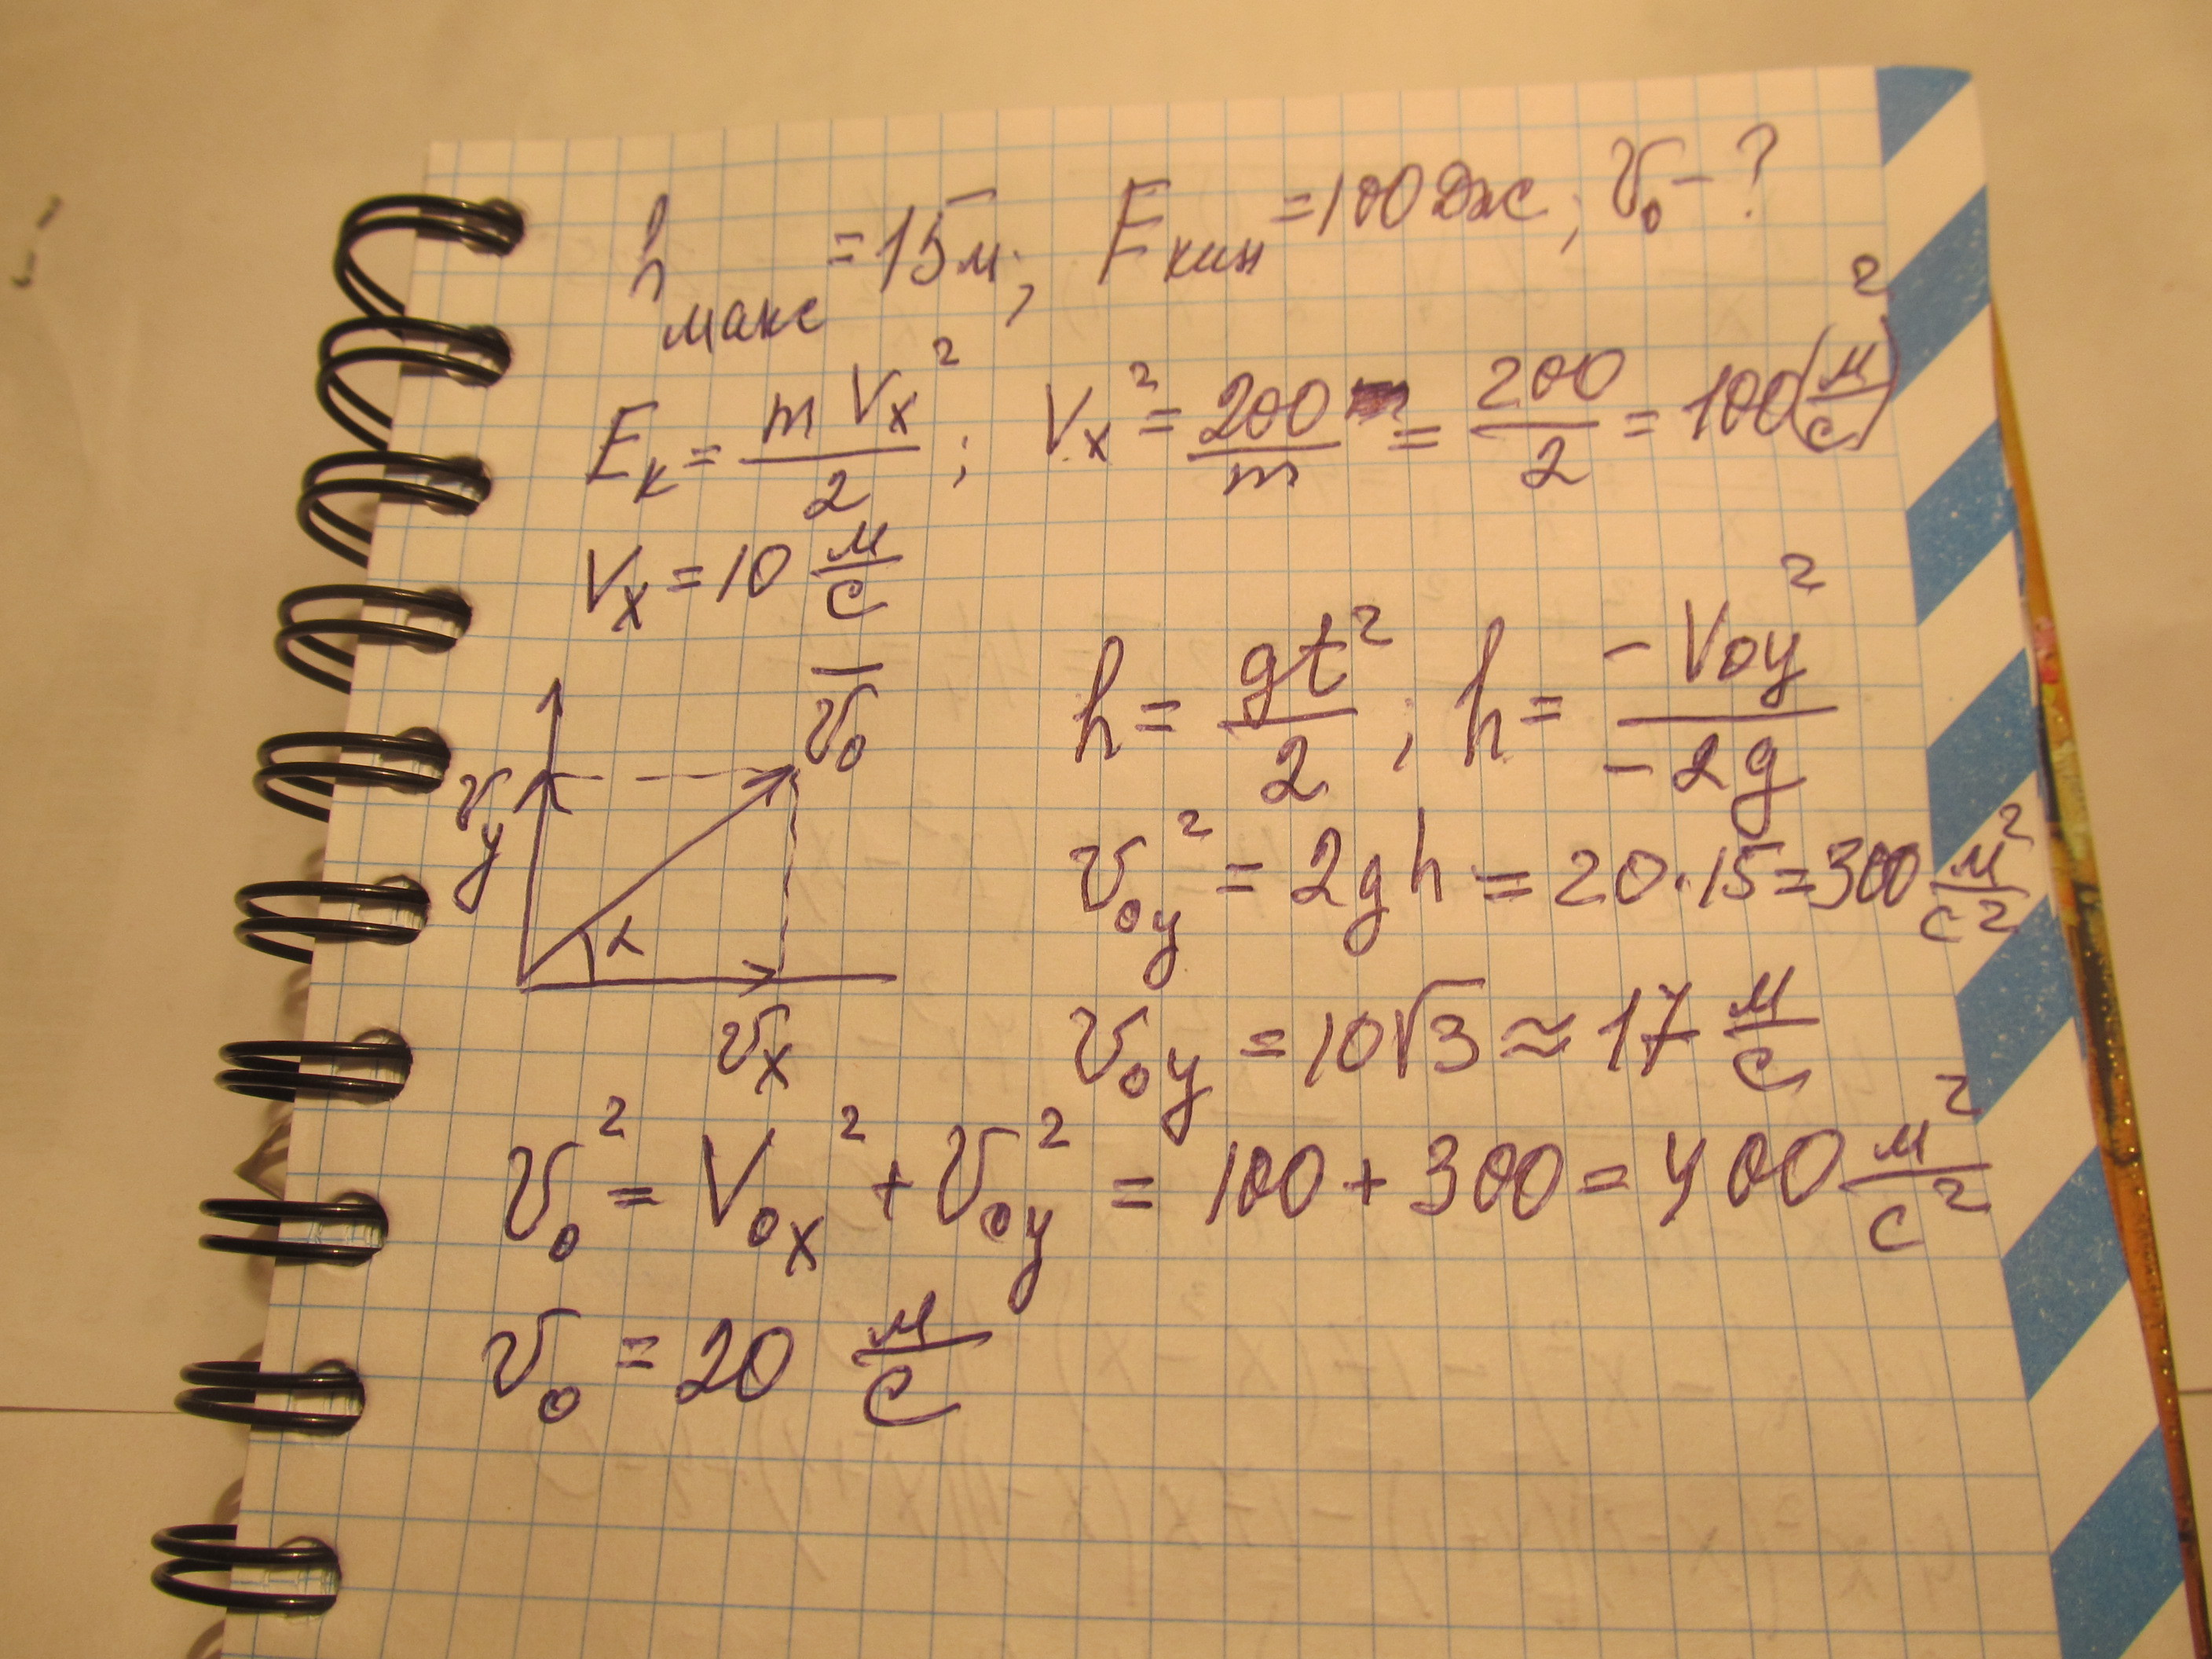 h макс = 15 м; Eкин = 100 Дж; v₀ - ?
Eк = m Vx² / 2 ; Vx² = 200 / m = 200 / 2 = 100 (м/с)²
Vx = 10 м/с
v̄₀
h = gt² / 2 ; h = -V₀y² / -2g
vy
α
v₀y² = 2gh = 20·15 = 300 м²/с²
vx
v₀y = 10√3 ≈ 17 м/с
v₀² = V₀x² + v₀y² = 100 + 300 = 400 м²/с²
v₀ = 20 м/с